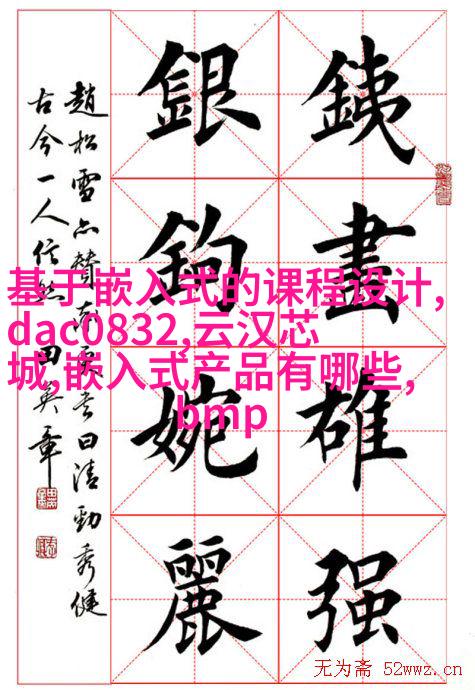 銕畫雄强
銀鉤婉麗
趙松雪亦贊率更書曰清勁秀健
古今一人信然 田英章
基于嵌入式的课程设计,
dac0832,云汉芯
城,嵌入式产品有哪些,
bmp
无为斋 52wwz.cn